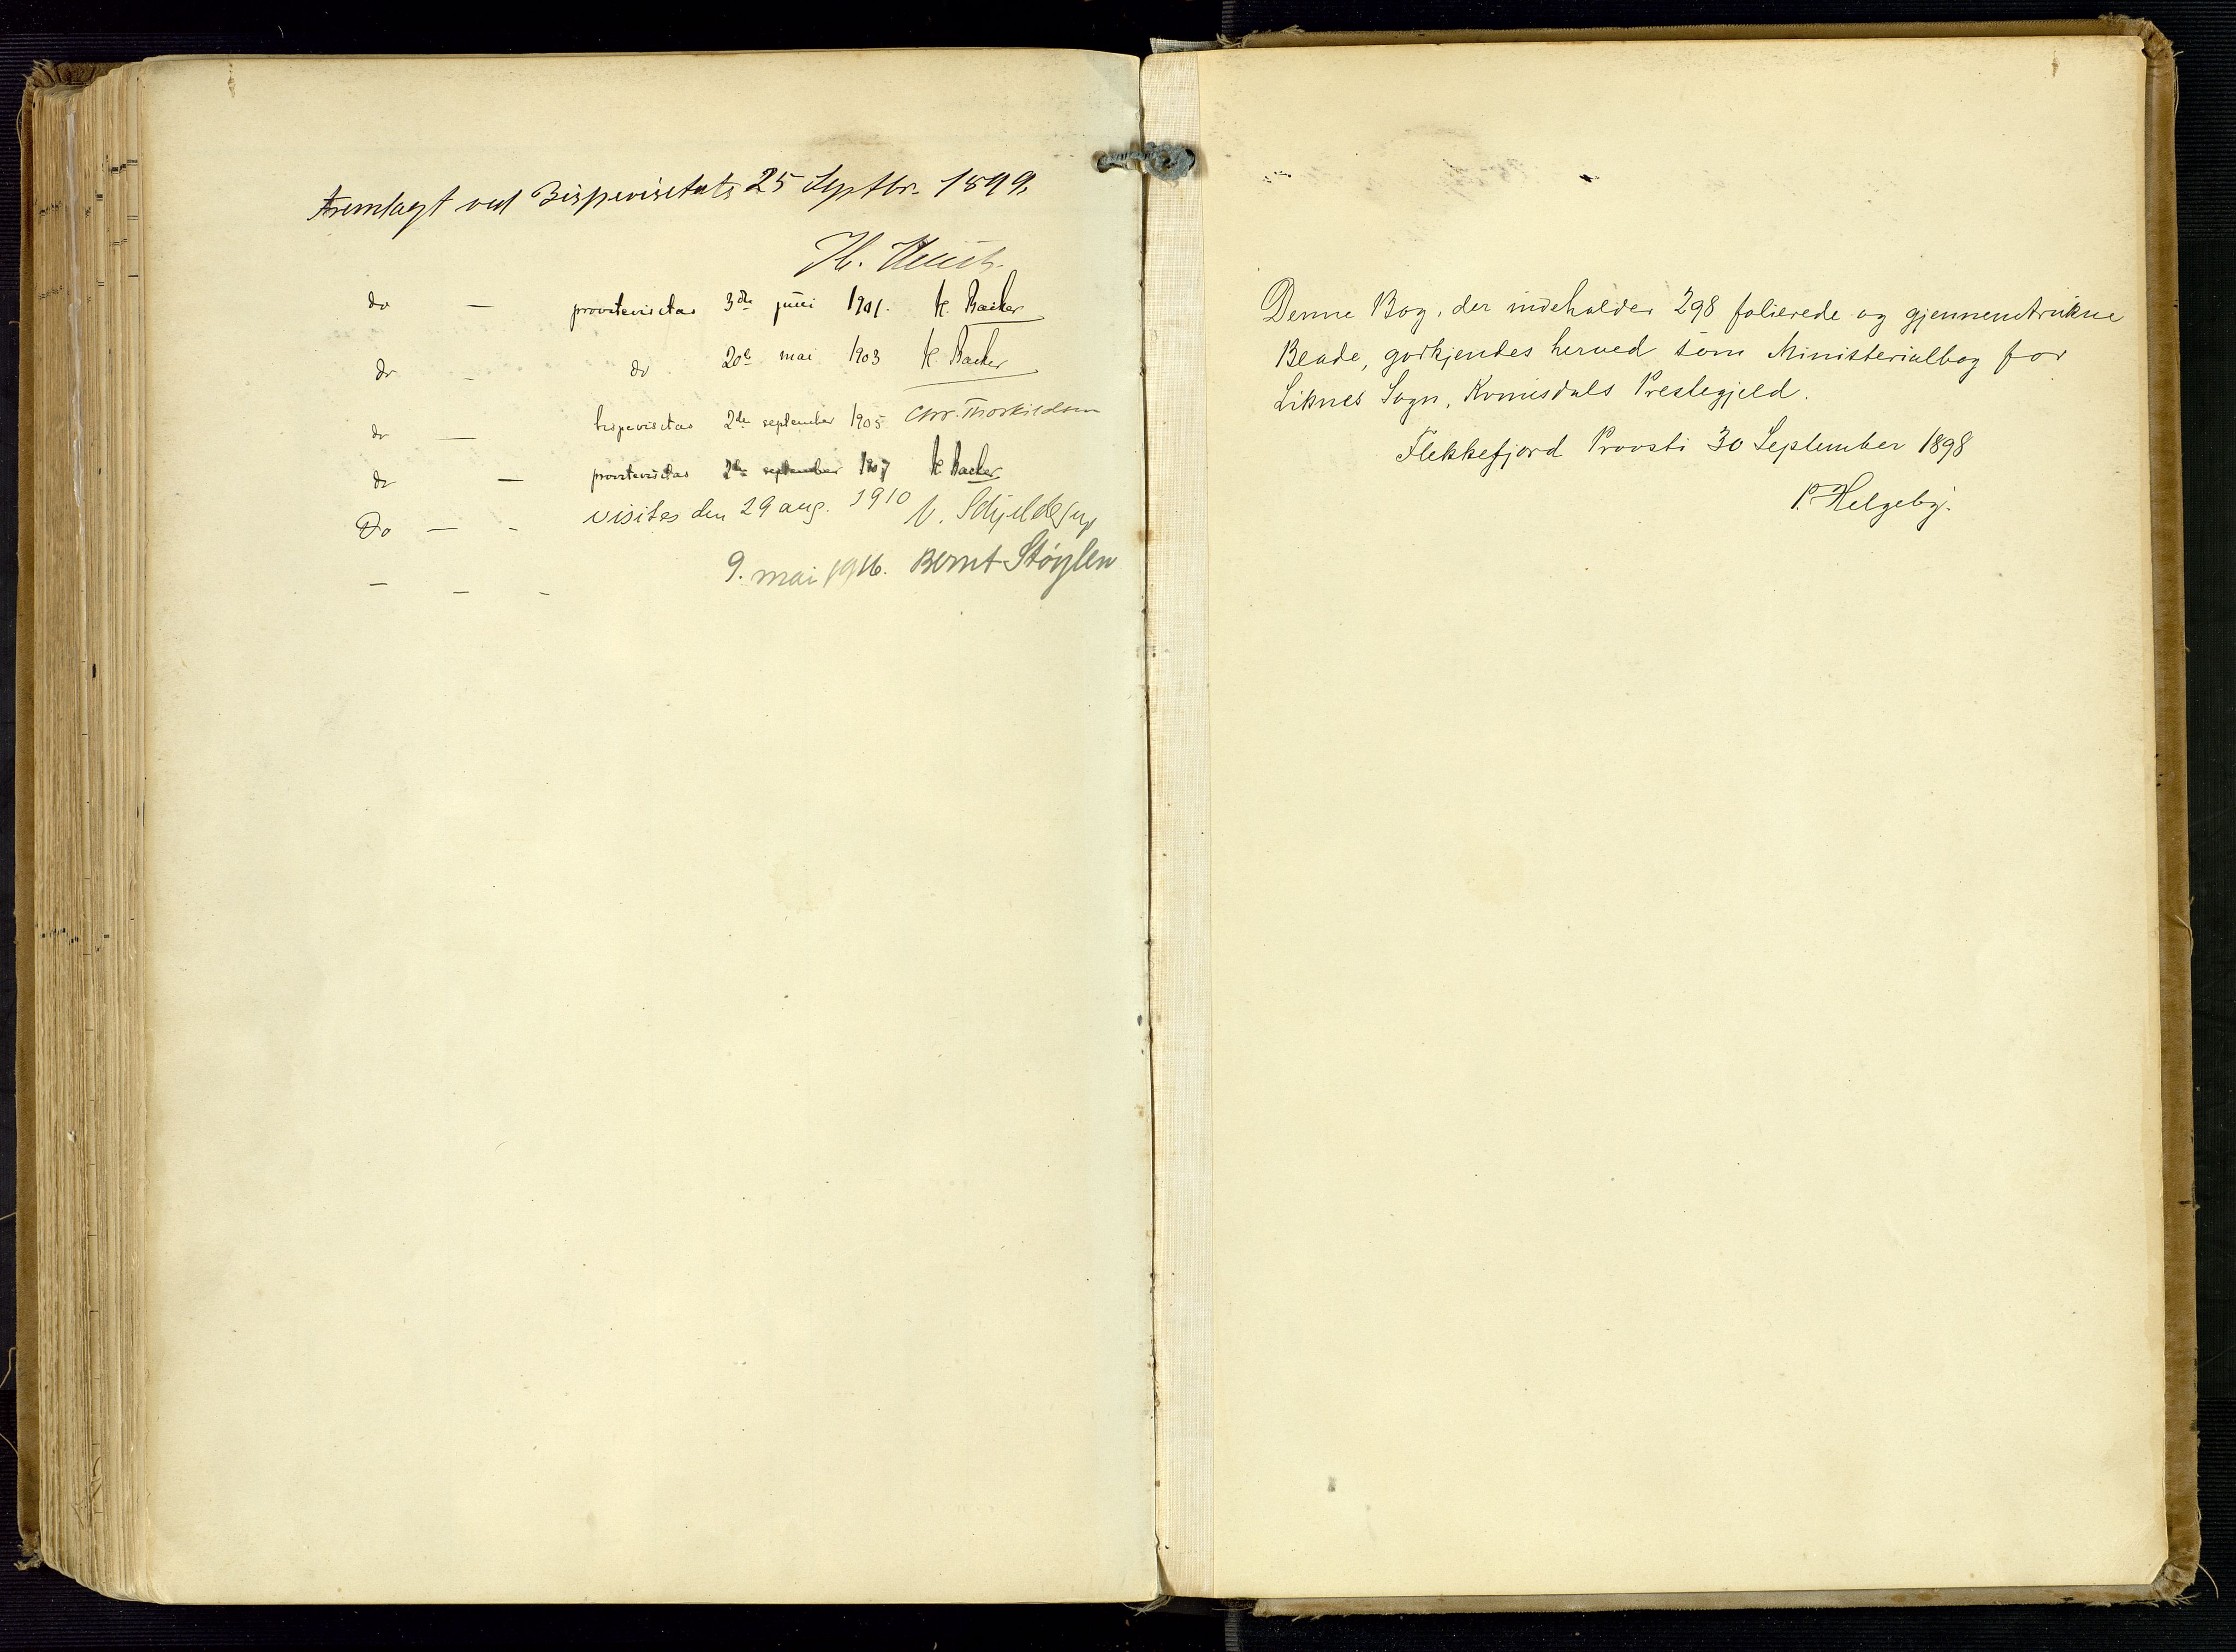 Fremlagt ved Bispevisitats 25 Septbr. 1899.
H. Heuch.
do — provstevisitas 3die juni 1901. K. Barker
do - do 20de mai 1903 K. Barker
do — bispevisitas 2den september 1905 Chr. Thorkildsen
do — provstevisitas 2den september 1907 K. Barker
Do — - visitas den 29 aug. 1910 V. Schjelderup
— - - 9. mai 1916. Bernt Støylen
Denne Bog, der indeholder 298 folierede og gjennemtrukne
Blade, godkjendes herved som Ministerialbog for
Liknes Sogn, Kvinesdals Prestegjeld.
Flekkefjord Provsti 30 September 1898
P. Helgeby.